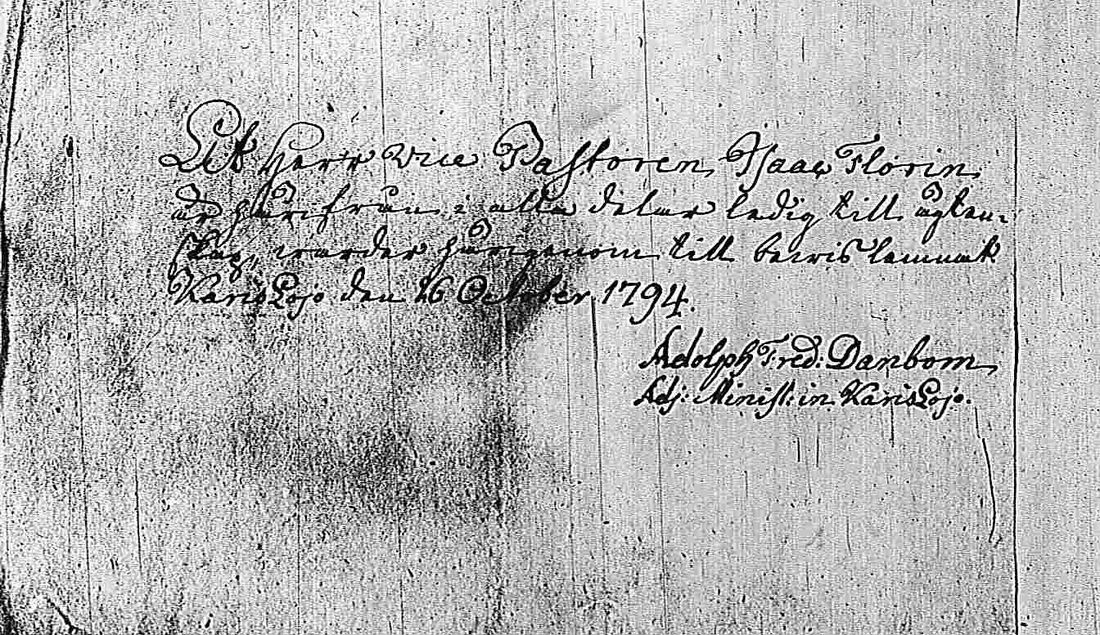 At Herr Vice Pastoren, Isaac Florin
är härifrån i alla delar ledig till ägten-
skap, warder härigenom till bewis lemnat
KarisLojo den 26 October 1794.
Adolph Fred: Danbom
Adj: Minist: in KarisLojo.